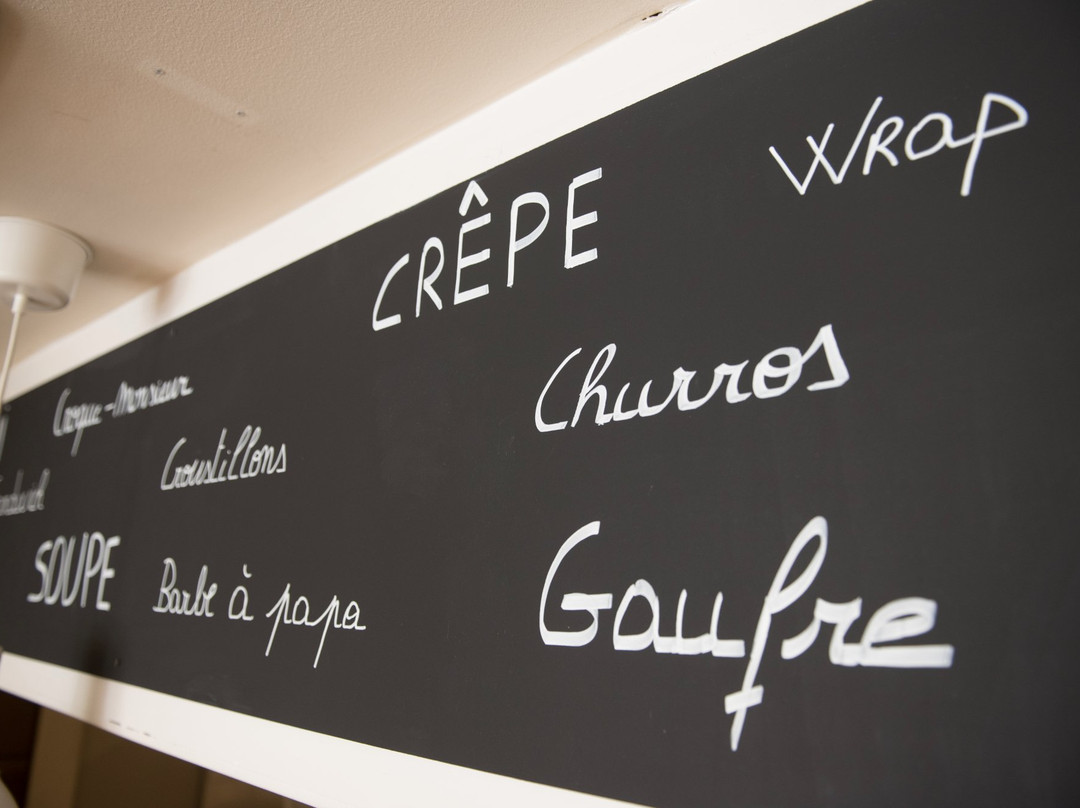 Wrap
CRÊPE
Churros
Croque-Monsieur
Croustillons
SOUPE
Barbe à papa
Gaufre